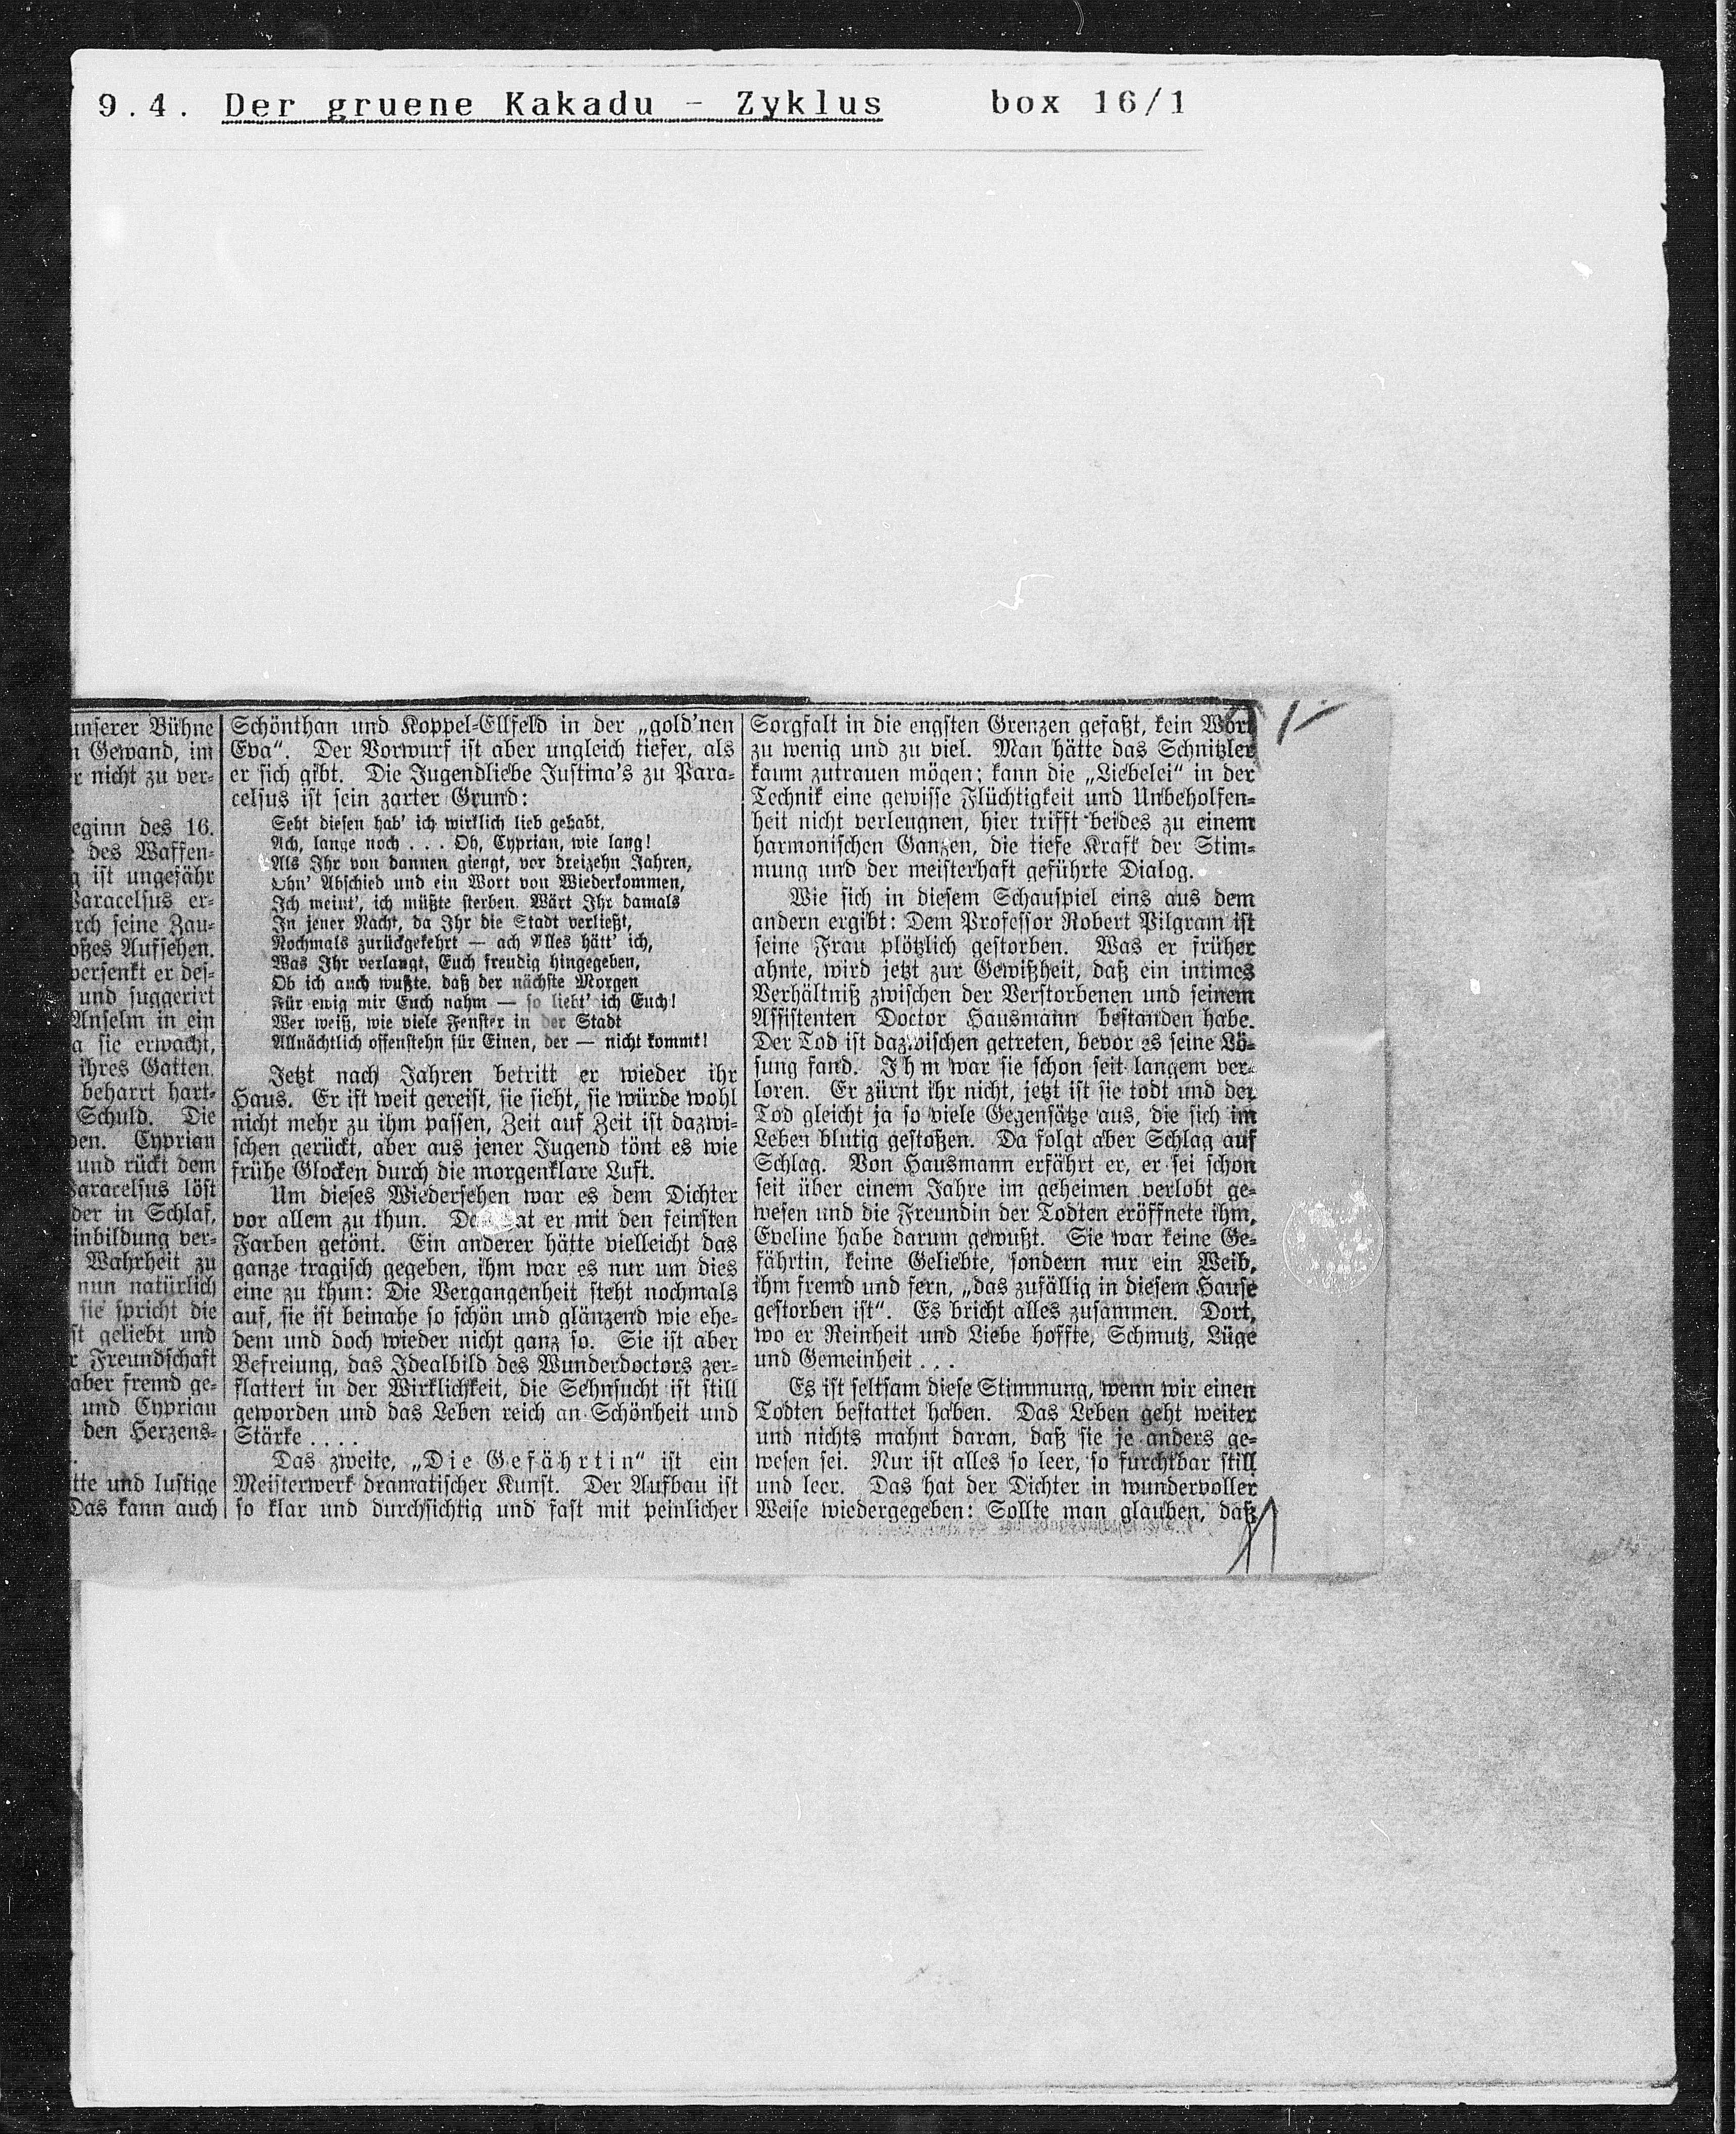 9.4. Der gruene Kakadu - Zyklus box 16/1
unserer Bühne
Gewand, im
nicht zu ver-
eginn des 16.
des Waffen-
ist ungefähr
Paracelsus er-
rch seine Zau-
oßes Aufsehen.
versenkt er des-
und suggerirt
Anselm in ein
sie erwacht,
ihres Gatten.
beharrt hart-
Schuld. Die
en. Cyprian
und rückt dem
Paracelsus löst
der in Schlaf,
inbildung ver-
Wahrheit zu
nun natürlich
sie spricht die
st geliebt und
Freundschaft
aber fremd ge-
und Cyprian
den Herzens-
tte und lustige
Das kann auch
Schönthan und Koppel-Ellfeld in der „gold'nen
Eva“. Der Vorwurf ist aber ungleich tiefer, als
er sich gibt. Die Jugendliebe Justina's zu Para-
celsus ist sein zarter Grund:
Seht diesen hab' ich wirklich lieb gehabt,
Ach, lange noch . . . Oh, Cyprian, wie lang!
Als Ihr von dannen giengt, vor dreizehn Jahren,
Ohn' Abschied und ein Wort von Wiederkommen,
Ich meint', ich müßte sterben. Wärt Ihr damals
In jener Nacht, da Ihr die Stadt verließt,
Nochmals zurückgekehrt — ach Alles hätt' ich,
Was Ihr verlangt, Euch freudig hingegeben,
Ob ich auch wußte, daß der nächste Morgen
Für ewig mir Euch nahm — so liebt' ich Euch!
Wer weiß, wie viele Fenster in der Stadt
Allnächtlich offenstehn für Einen, der — nicht kommt!
Jetzt nach Jahren betritt er wieder ihr
Haus. Er ist weit gereist, sie sieht, sie würde wohl
nicht mehr zu ihm passen, Zeit auf Zeit ist dazwi-
schen gerückt, aber aus jener Jugend tönt es wie
frühe Glocken durch die morgenklare Luft.
Um dieses Wiedersehen war es dem Dichter
vor allem zu thun. Da at er mit den feinsten
Farben getönt. Ein anderer hätte vielleicht das
ganze tragisch gegeben, ihm war es nur um dies
eine zu thun: Die Vergangenheit steht nochmals
auf, sie ist beinahe so schön und glänzend wie ehe-
dem und doch wieder nicht ganz so. Sie ist aber
Befreiung, das Idealbild des Wunderdoctors zer-
flattert in der Wirklichkeit, die Sehnsucht ist still
geworden und das Leben reich an Schönheit und
Stärke . . . .
Das zweite, „Die Gefährtin“ ist ein
Meisterwerk dramatischer Kunst. Der Aufbau ist
so klar und durchsichtig und fast mit peinlicher
Sorgfalt in die engsten Grenzen gefaßt, kein Wort
zu wenig und zu viel. Man hätte das Schnitzler
kaum zutrauen mögen; kann die „Liebelei“ in der
Technik eine gewisse Flüchtigkeit und Unbeholfen-
heit nicht verleugnen, hier trifft beides zu einem
harmonischen Ganzen, die tiefe Kraft der Stim-
mung und der meisterhaft geführte Dialog.
Wie sich in diesem Schauspiel eins aus dem
andern ergibt: Dem Professor Robert Pilgram ist
seine Frau plötzlich gestorben. Was er früher
ahnte, wird jetzt zur Gewißheit, daß ein intimes
Verhältniß zwischen der Verstorbenen und seinem
Assistenten Doctor Hausmann bestanden habe.
Der Tod ist dazwischen getreten, bevor es seine Lö-
sung fand. Ihm war sie schon seit langem ver-
loren. Er zürnt ihr nicht, jetzt ist sie todt und der
Tod gleicht ja so viele Gegensätze aus, die sich im
Leben blutig gestoßen. Da folgt aber Schlag auf
Schlag. Von Hausmann erfährt er, er sei schon
seit über einem Jahre im geheimen verlobt ge-
wesen und die Freundin der Todten eröffnete ihm,
Eveline habe darum gewußt. Sie war keine Ge-
fährtin, keine Geliebte, sondern nur ein Weib,
ihm fremd und fern, „das zufällig in diesem Hause
gestorben ist“. Es bricht alles zusammen. Dort,
wo er Reinheit und Liebe hoffte, Schmutz, Lüge
und Gemeinheit . . .
Es ist seltsam diese Stimmung, wenn wir einen
Todten bestattet haben. Das Leben geht weiter
und nichts mahnt daran, daß sie je anders ge-
wesen sei. Nur ist alles so leer, so furchtbar still
und leer. Das hat der Dichter in wundervoller
Weise wiedergegeben: Sollte man glauben, daß